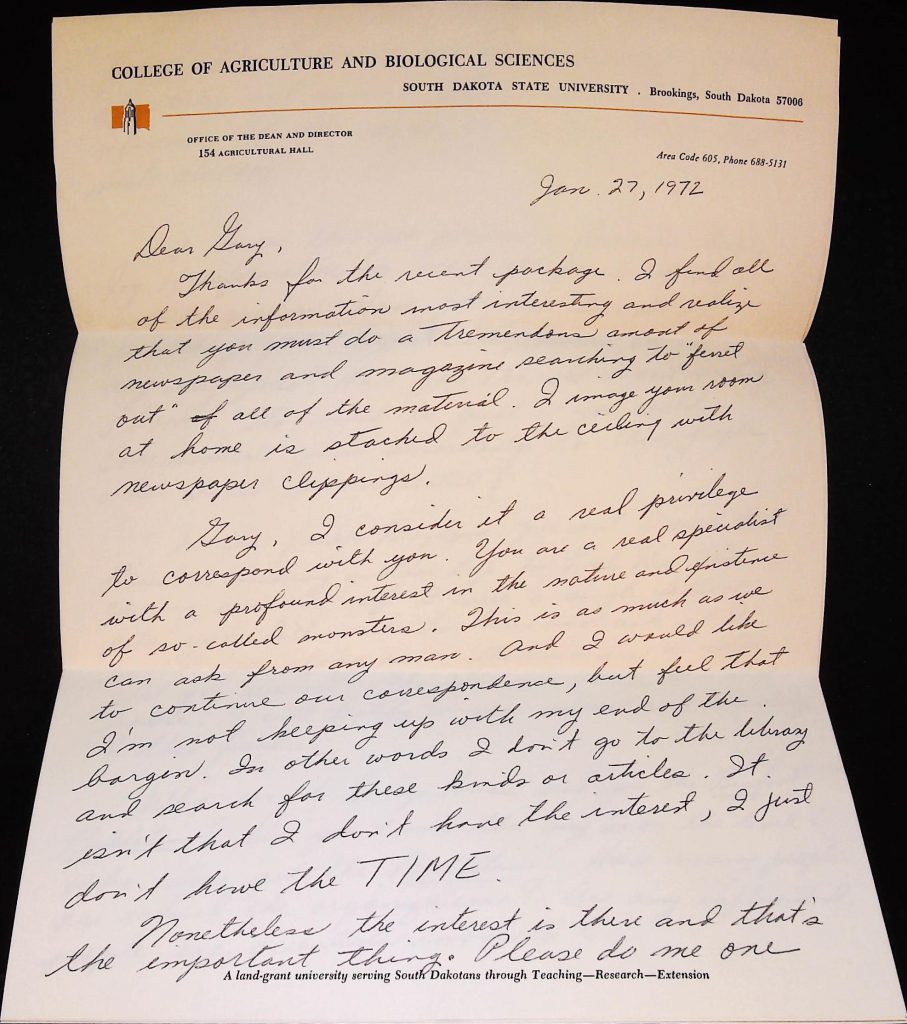 COLLEGE OF AGRICULTURE AND BIOLOGICAL SCIENCES
SOUTH DAKOTA STATE UNIVERSITY . Brookings, South Dakota 57006
OFFICE OF THE DEAN AND DIRECTOR
154 AGRICULTURAL HALL
Area Code 605, Phone 688-5131
Jan. 27, 1972
Dear Gary,
Thanks for the recent package. I find all
of the information most interesting and realize
that you must do a tremendous amount of
newspaper and magazine searching to "ferret
out" of all of the material. I image your room
at home is stacked to the ceiling with
newspaper clippings.
Gary, I consider it a real privilege
to correspond with you. You are a real specialist
with a profound interest in the nature and existence
of so-called monsters. This is as much as we
can ask from any man. And I would like
to continue our correspondence, but feel that
I'm not keeping up with my end of the
bargin. In other words I don't go to the library
and search for these kinds or articles. It
isn't that I don't have the interest, I just
don't have the TIME.
Nonetheless the interest is there and that's
the important thing. Please do me one
A land-grant university serving South Dakotans through Teaching—Research—Extension